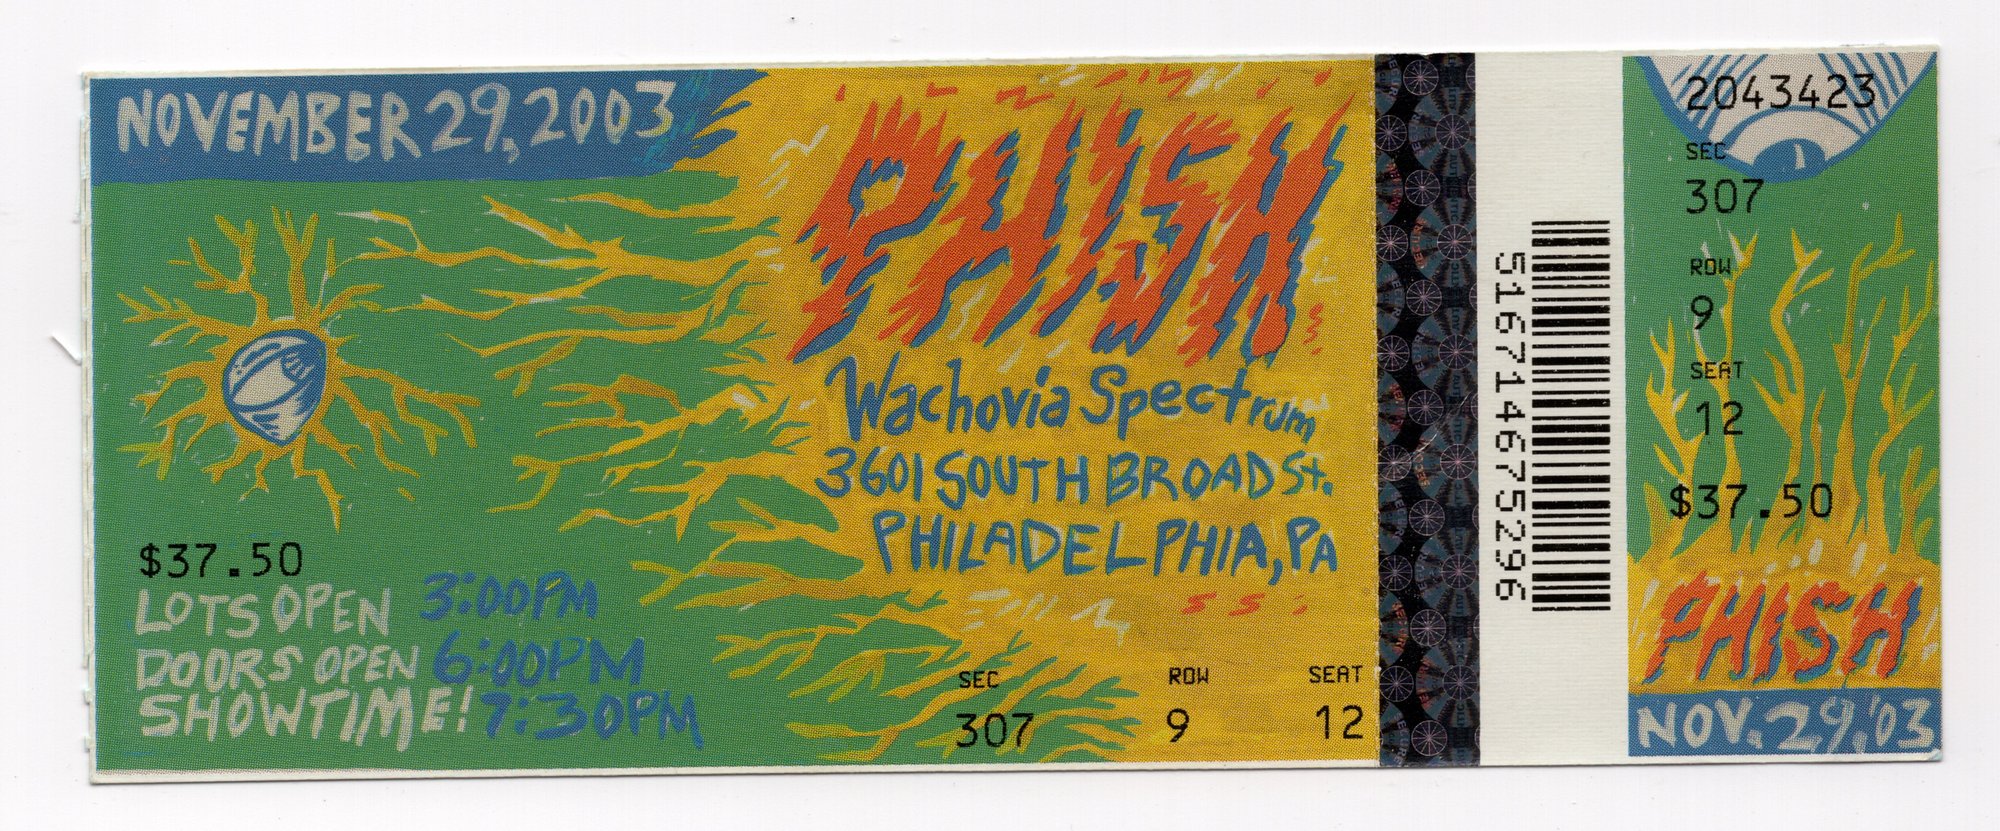 NOVEMBER 29, 2003
PHISH
Wachovia Spectrum
3601 SOUTH BROAD St.
PHILADELPHIA, PA
$37.50
LOTS OPEN 3:00PM
DOORS OPEN 6:00PM
SHOWTIME! 7:30PM
SEC ROW SEAT
307 9 12
516714675296
2043423
SEC
307
ROW
9
SEAT
12
$37.50
PHISH
NOV. 29, '03